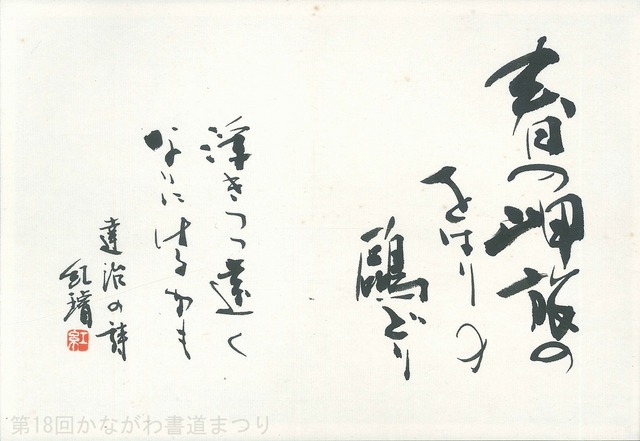 春の岬旅の
をはりの
鴎どり
浮きつつ遠く
なりにけるかも
達治の詩
紅
第18回かながわ書道まつり